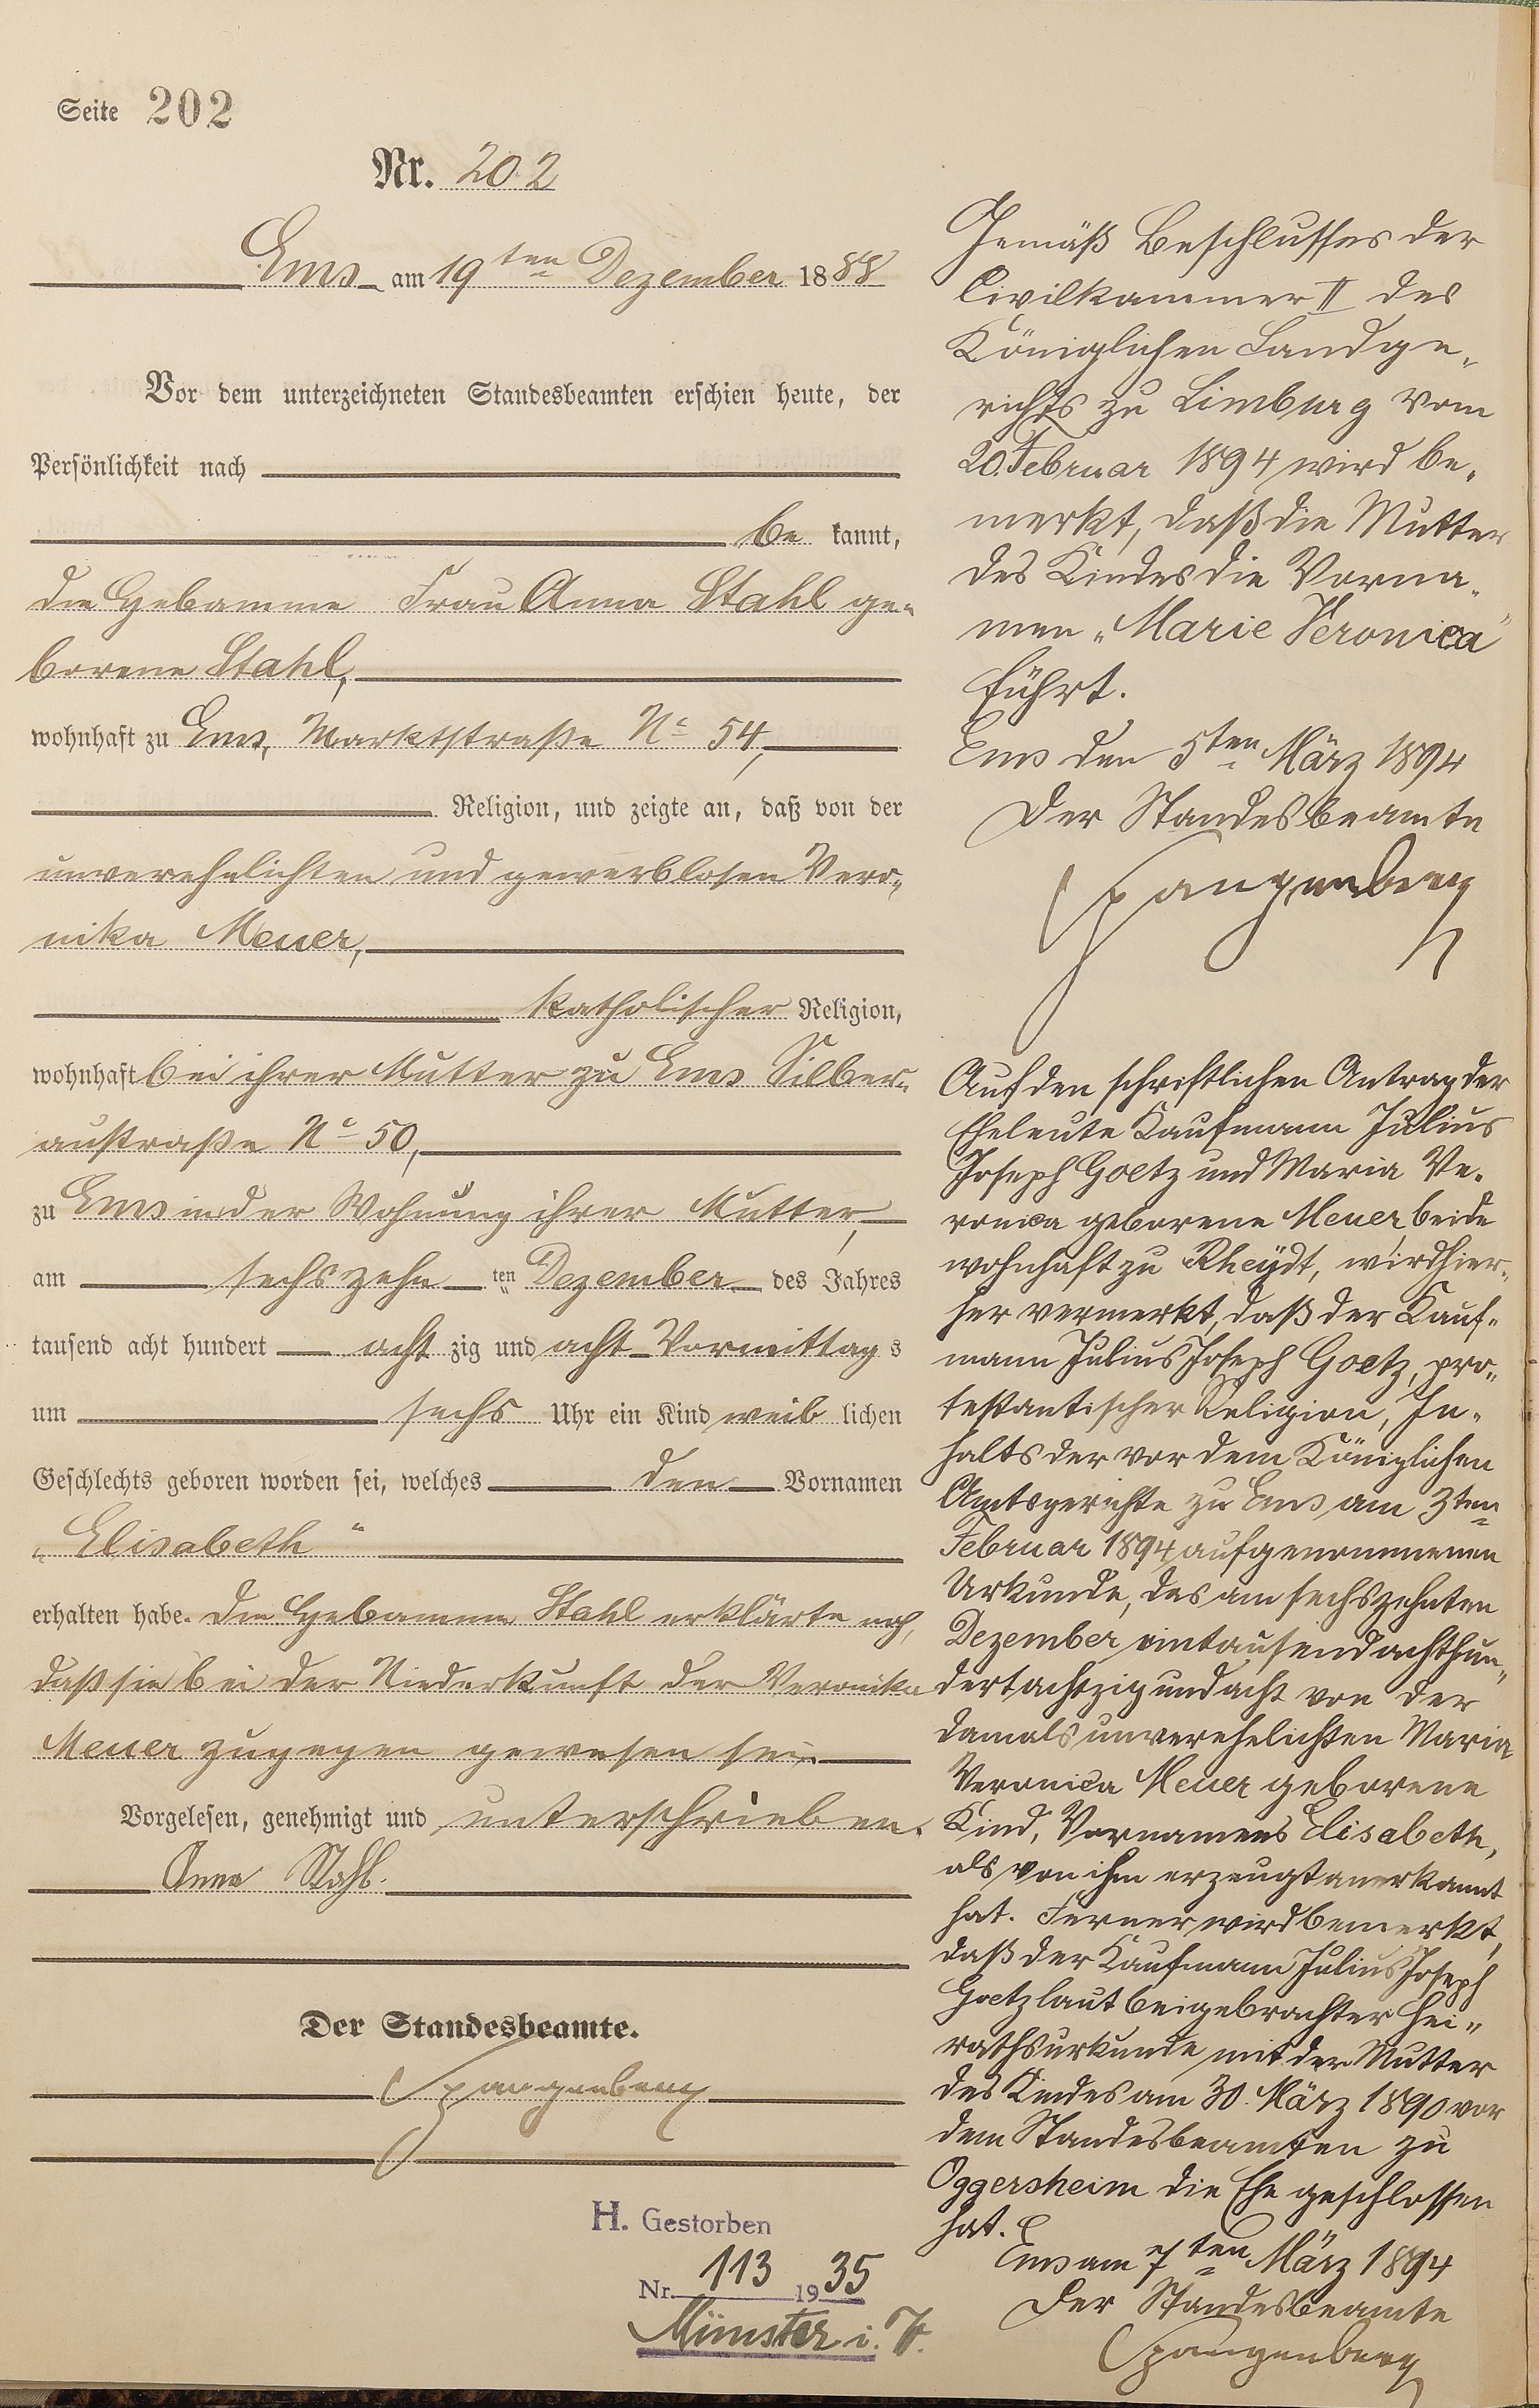 Seite 202
Nr. 202
Ems am 19ten Dezember 1888
Vor dem unterzeichneten Standesbeamten erschien heute, der
Persönlichkeit nach
be kannt,
die Hebamme Frau Anna Stahl ge-
borene Stahl,
wohnhaft zu Ems, Marktstraße No 54,
Religion, und zeigte an, daß von der
unverehelichten und gewerblosen Vero-
nika Meuer,
katholischer Religion,
wohnhaft bei ihrer Mutter zu Ems Silber-
austraße No 50,
zu Ems in der Wohnung ihrer Mutter,
am sechszehn ten Dezember des Jahres
tausend acht hundert acht zig und acht Vormittag s
um sechs Uhr ein Kind weib lichen
Geschlechts geboren worden sei, welches den Vornamen
„Elisabeth“
erhalten habe. Die Hebamme Stahl erklärte noch,
daß sie bei der Niederkunft der Veronika
Meuer zugegen gewesen sei.
Vorgelesen, genehmigt und unterschrieben.
Anna Stahl.
Der Standesbeamte.
Spangenberg
H. Gestorben
Nr. 113 1935
Münster i. W.
Gemäß Beschlusses der
Civilkammer II des
Königlichen Landge-
richts zu Limburg vom
20. Februar 1894 wird be-
merkt, daß die Mutter
des Kindes die Vorna-
men „Marie Veronica“
führt.
Ems den 5ten März 1894
Der Standesbeamte
Spangenberg
Auf den schriftlichen Antrag der
Eheleute Kaufmann Julius
Joseph Goetz und Maria Ve-
ronica geborene Meuer beide
wohnhaft zu Rheydt, wird hier-
her vermerkt, daß der Kauf-
mann Julius Joseph Goetz, pro-
testantischer Religion, In-
halts der vor dem Königlichen
Amtsgerichte zu Ems am 3ten
Februar 1894 aufgenommenen
Urkunde, das am sechszehnten
Dezember eintausendachthun-
dertachtzigundacht von der
damals unverehelichten Maria
Veronica Meuer geborene
Kind, Vornamens Elisabeth,
als von ihm erzeugt anerkannt
hat. Ferner wird bemerkt,
daß der Kaufmann Julius Joseph
Goetz laut beigebrachter Hei-
rathsurkunde mit der Mutter
des Kindes am 30. März 1890 vor
dem Standesbeamten zu
Oggersheim die Ehe geschlossen
hat.
Ems am 7ten März 1894
Der Standesbeamte
Spangenberg